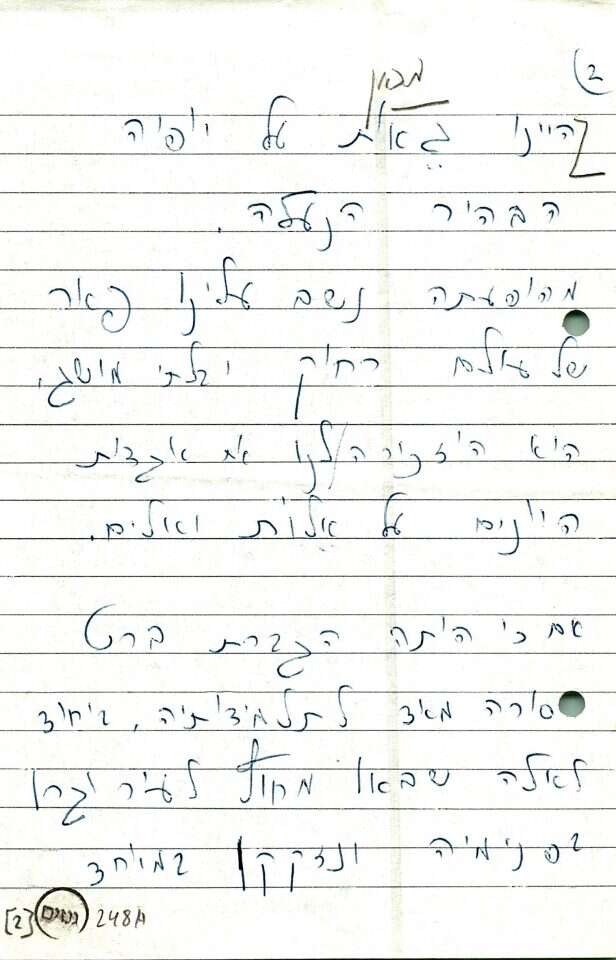 (2
מכאן
היינו גאות על יופיה
הבהיר הנעלה.
מהופעתה נשב עלינו פאר
של עולם רחוק ובלתי מושג,
היא הזכירה לנו את אגדות
היונים על אלות ואלים.
אם כי היתה הגברת ברט
מסורה מאד לתלמידותיה, ביחוד
לאלה שבאו מחוץ לעיר וגרו
בפנימיה ונזקקו במיוחד
[2] גנזים 248A